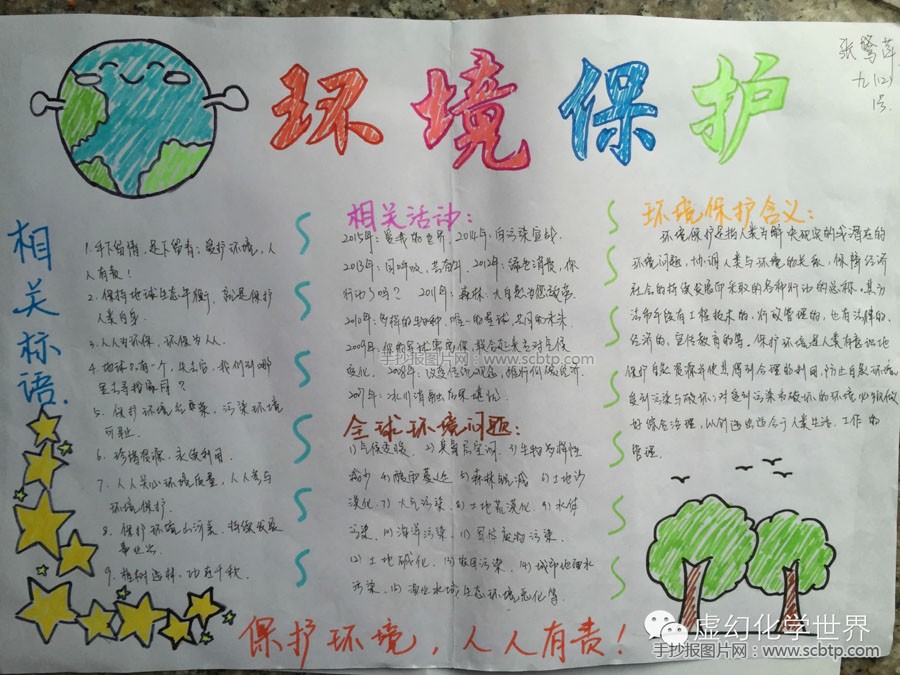 环境保护
张
九(2)
1号
相关标语
1.手下留情,足下留青;爱护环境,人
人有责!
2.保持地球生态平衡,就是保护
人类自身
3.人人为环保,环保为人人
4.地球只有一个,失去它,我们到哪
里去寻找家园?
5.保护环境光荣,污染环境
可耻
6.珍惜资源,永续利用
7.人人关心环境质量,人人参与
环境保护
8.保护环境山河美,持续发展
事业兴
9.植树造林,功在千秋
相关活动:
2015年:爱我的世界,2014年:向污染宣战
2013年:同呼吸,共奋斗,2012年:绿色消费,你
行动了吗? 2011年:森林:大自然为您效劳
2010年:多样的生物种,唯一的星球,共同的未来
2009年:你的星球需要你,联合起来应对气候
变化,2008年:改变传统观念,推行低碳经济
2007年:冰川消融,后果堪忧
全球环境问题:
1)气候变暖,2)臭氧层空洞,3)生物多样性
减少 4)酸雨蔓延 5)森林锐减 6)土地沙
漠化,7)大气污染,8)土地荒漠化,9)水体
污染,10)海洋污染,11)固体废物污染
12)土地碱化,13)农田污染,14)城市地面水
污染,15)渔业水域生态环境恶化等
环境保护含义:
环境保护是指人类为解决现实的或潜在的
环境问题,协调人类与环境的关系,保障经济
社会的持续发展而采取的各种行动的总称。其方
法和手段有工程技术的,行政管理的,也有法律的、
经济的、宣传教育的等。保护环境是人类有意识地
保护自然资源并使其得到合理的利用,防止自然环境
受到污染与破坏;对受到污染和破坏的环境必须做
好综合治理,以创造出适合于人类生活、工作的
环境。
保护环境,人人有责!
手抄报图片网:www.scbtp.com
虚幻化学世界
手抄报图片网:www.scbtp.com